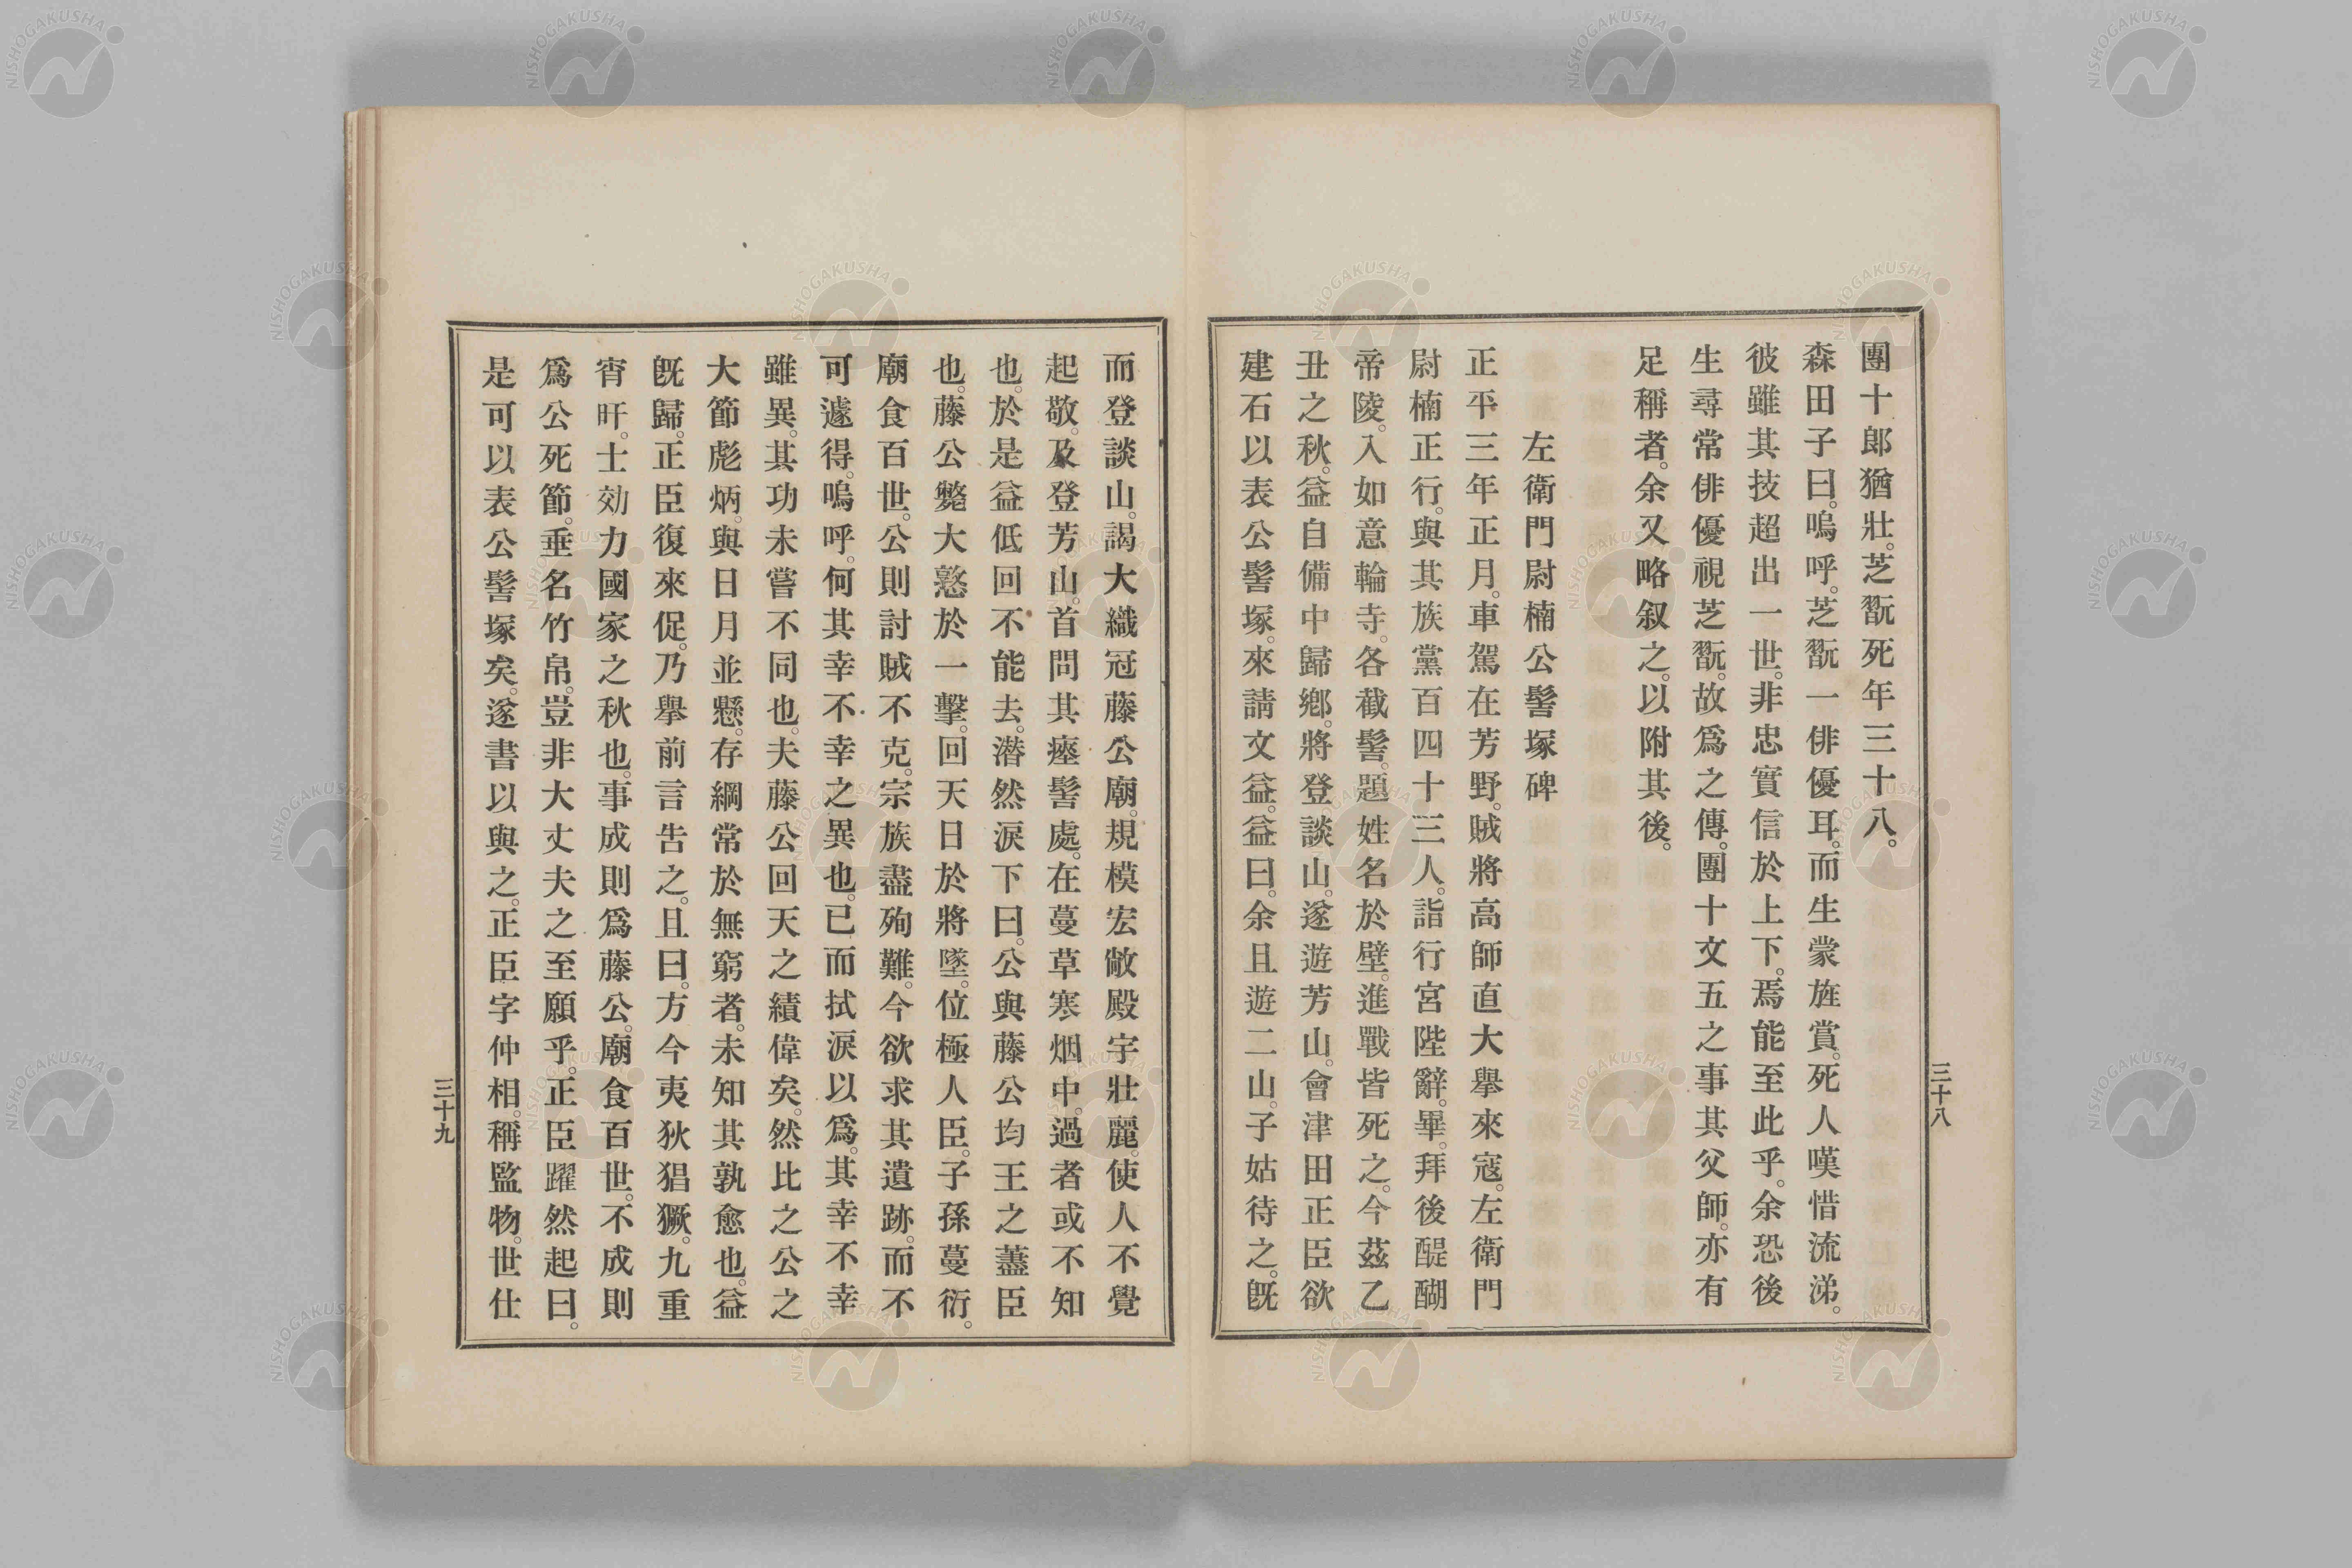 團十郎猶壯。芝翫死年三十八。
森田子曰。嗚呼。芝翫一俳優耳。而生蒙旌賞。死人嘆惜流涕。
彼雖其技超出一世。非忠實信於上下。焉能至此乎。余恐後
生尋常俳優視芝翫。故爲之傳。團十文五之事其父師。亦有
足稱者。余又略叙之。以附其後。
左衛門尉楠公髻塚碑
正平三年正月。車駕在芳野。賊將高師直大擧來寇。左衛門
尉楠正行。與其族黨百四十三人。詣行宮陛辭。畢。拜後醍醐
帝陵。入如意輪寺。各截髻。題姓名於壁。進戰皆死之。今茲乙
丑之秋。益自備中歸鄕。將登談山。遂遊芳山。會津田正臣欲
建石以表公髻塚。來請文益。益曰。余且遊二山。子姑待之。既
三十八
而登談山。謁大織冠藤公廟。規模宏敞殿宇壯麗。使人不覺
起敬。及登芳山。首問其瘞髻處。在蔓草寒烟中。過者或不知
也。於是益低回不能去。潸然淚下曰。公與藤公均王之藎臣
也。藤公斃大憝於一擊。回天日於將墜。位極人臣。子孫蔓衍。
廟食百世。公則討賊不克。宗族盡殉難。今欲求其遺跡。而不
可遽得。嗚呼。何其幸不幸之異也。已而拭淚以爲。其幸不幸
雖異。其功未嘗不同也。夫藤公回天之績偉矣。然比之公之
大節彪炳。與日月並懸。存綱常於無窮者。未知其孰愈也。益
既歸。正臣復來促。乃擧前言告之。且曰。方今夷狄猖獗。九重
宵旰。士効力國家之秋也。事成則爲藤公。廟食百世。不成則
爲公死節。垂名竹帛。豈非大丈夫之至願乎。正臣躍然起曰。
是可以表公髻塚矣。遂書以與之。正臣字仲相。稱監物。世仕
三十九